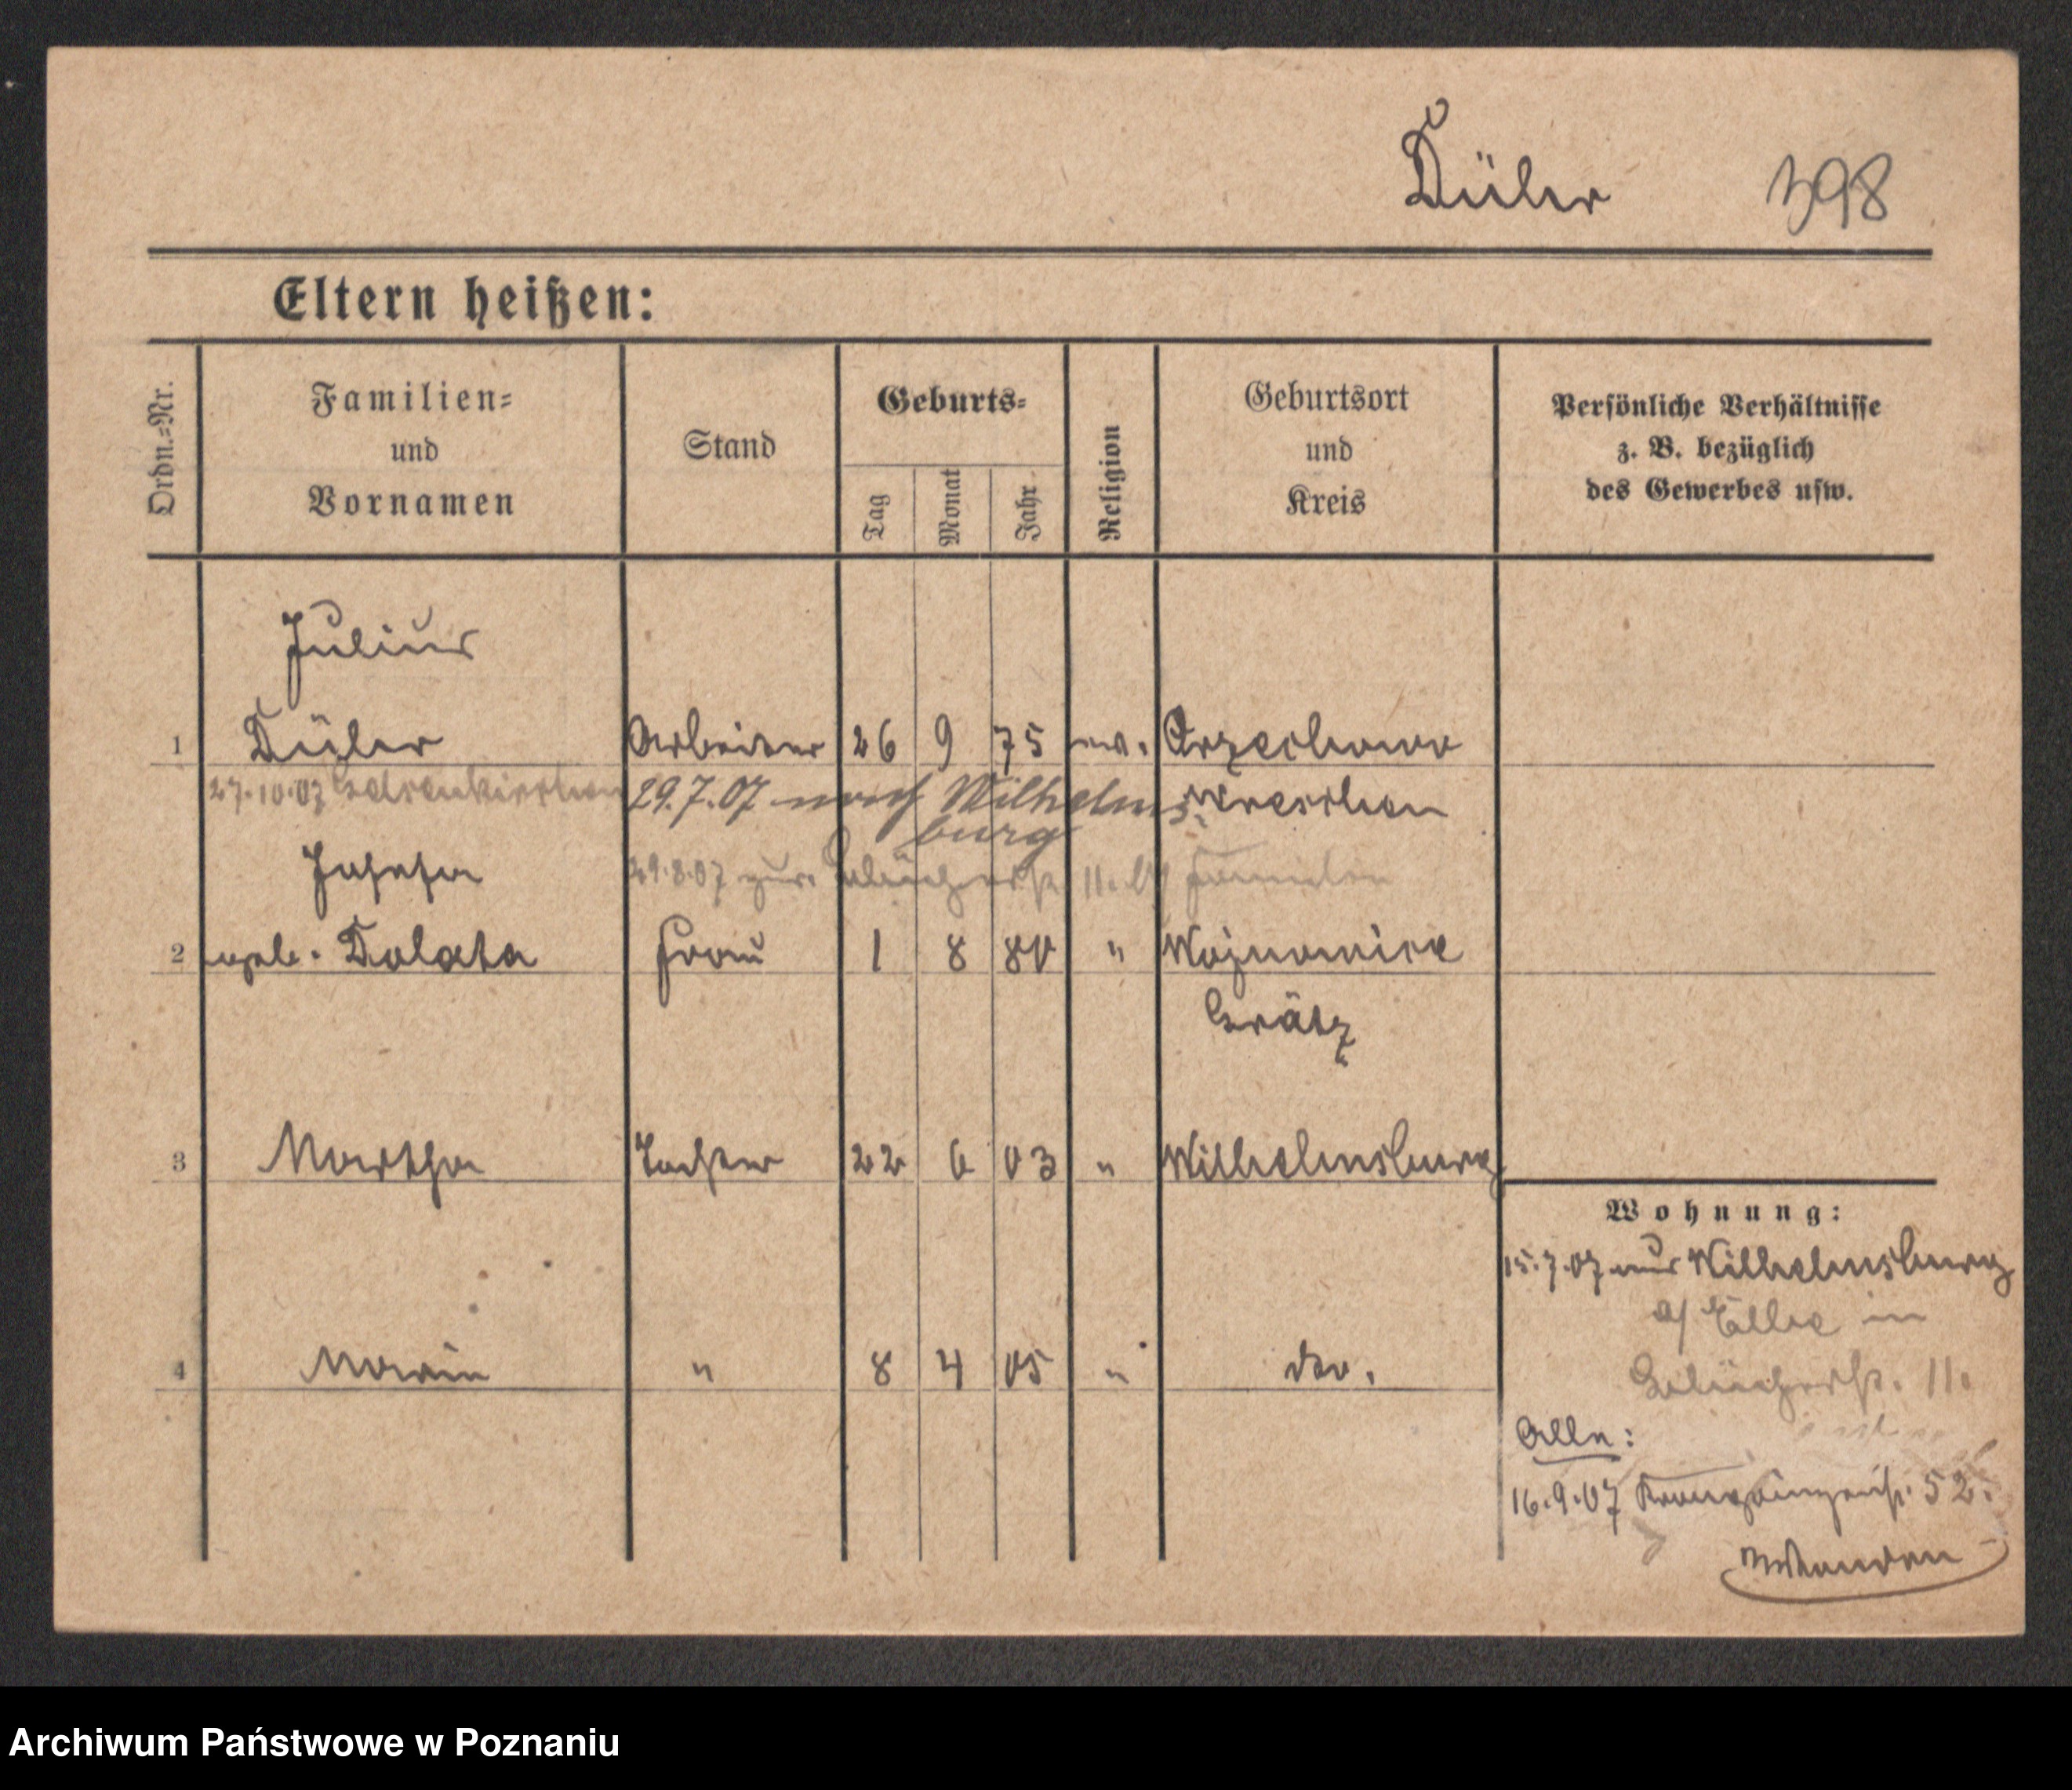 Düler 398
Eltern heißen:
Ordn.=Nr.
Familien=
und
Vornamen
Stand
Geburts=
Tag
Monat
Jahr
Religion
Geburtsort
und
Kreis
Persönliche Verhältnisse
z. B. bezüglich
des Gewerbes usw.
Julius
1 Düler Arbeiter 26 9 75 ev. Orzechowo
27.10.07 Gelsenkirchen 29.7.07 nach Wilhelms Wreschen
burg
Josefa 29.8.07 zur. Blücherstr. 11.
2 geb. Dolata Frau 1 8 80 " Wojnowice
Grätz
3 Martha Tochter 22 6 03 " Wilhelmsburg
Wohnung:
15.7.07 aus Wilhelmsburg
a/ Elbe in
4 Maria " 8 4 05 " do.
Blücherstr. 11.
Alle:
16.9.07 Kronprinzenstr. 52.
Archiwum Państwowe w Poznaniu